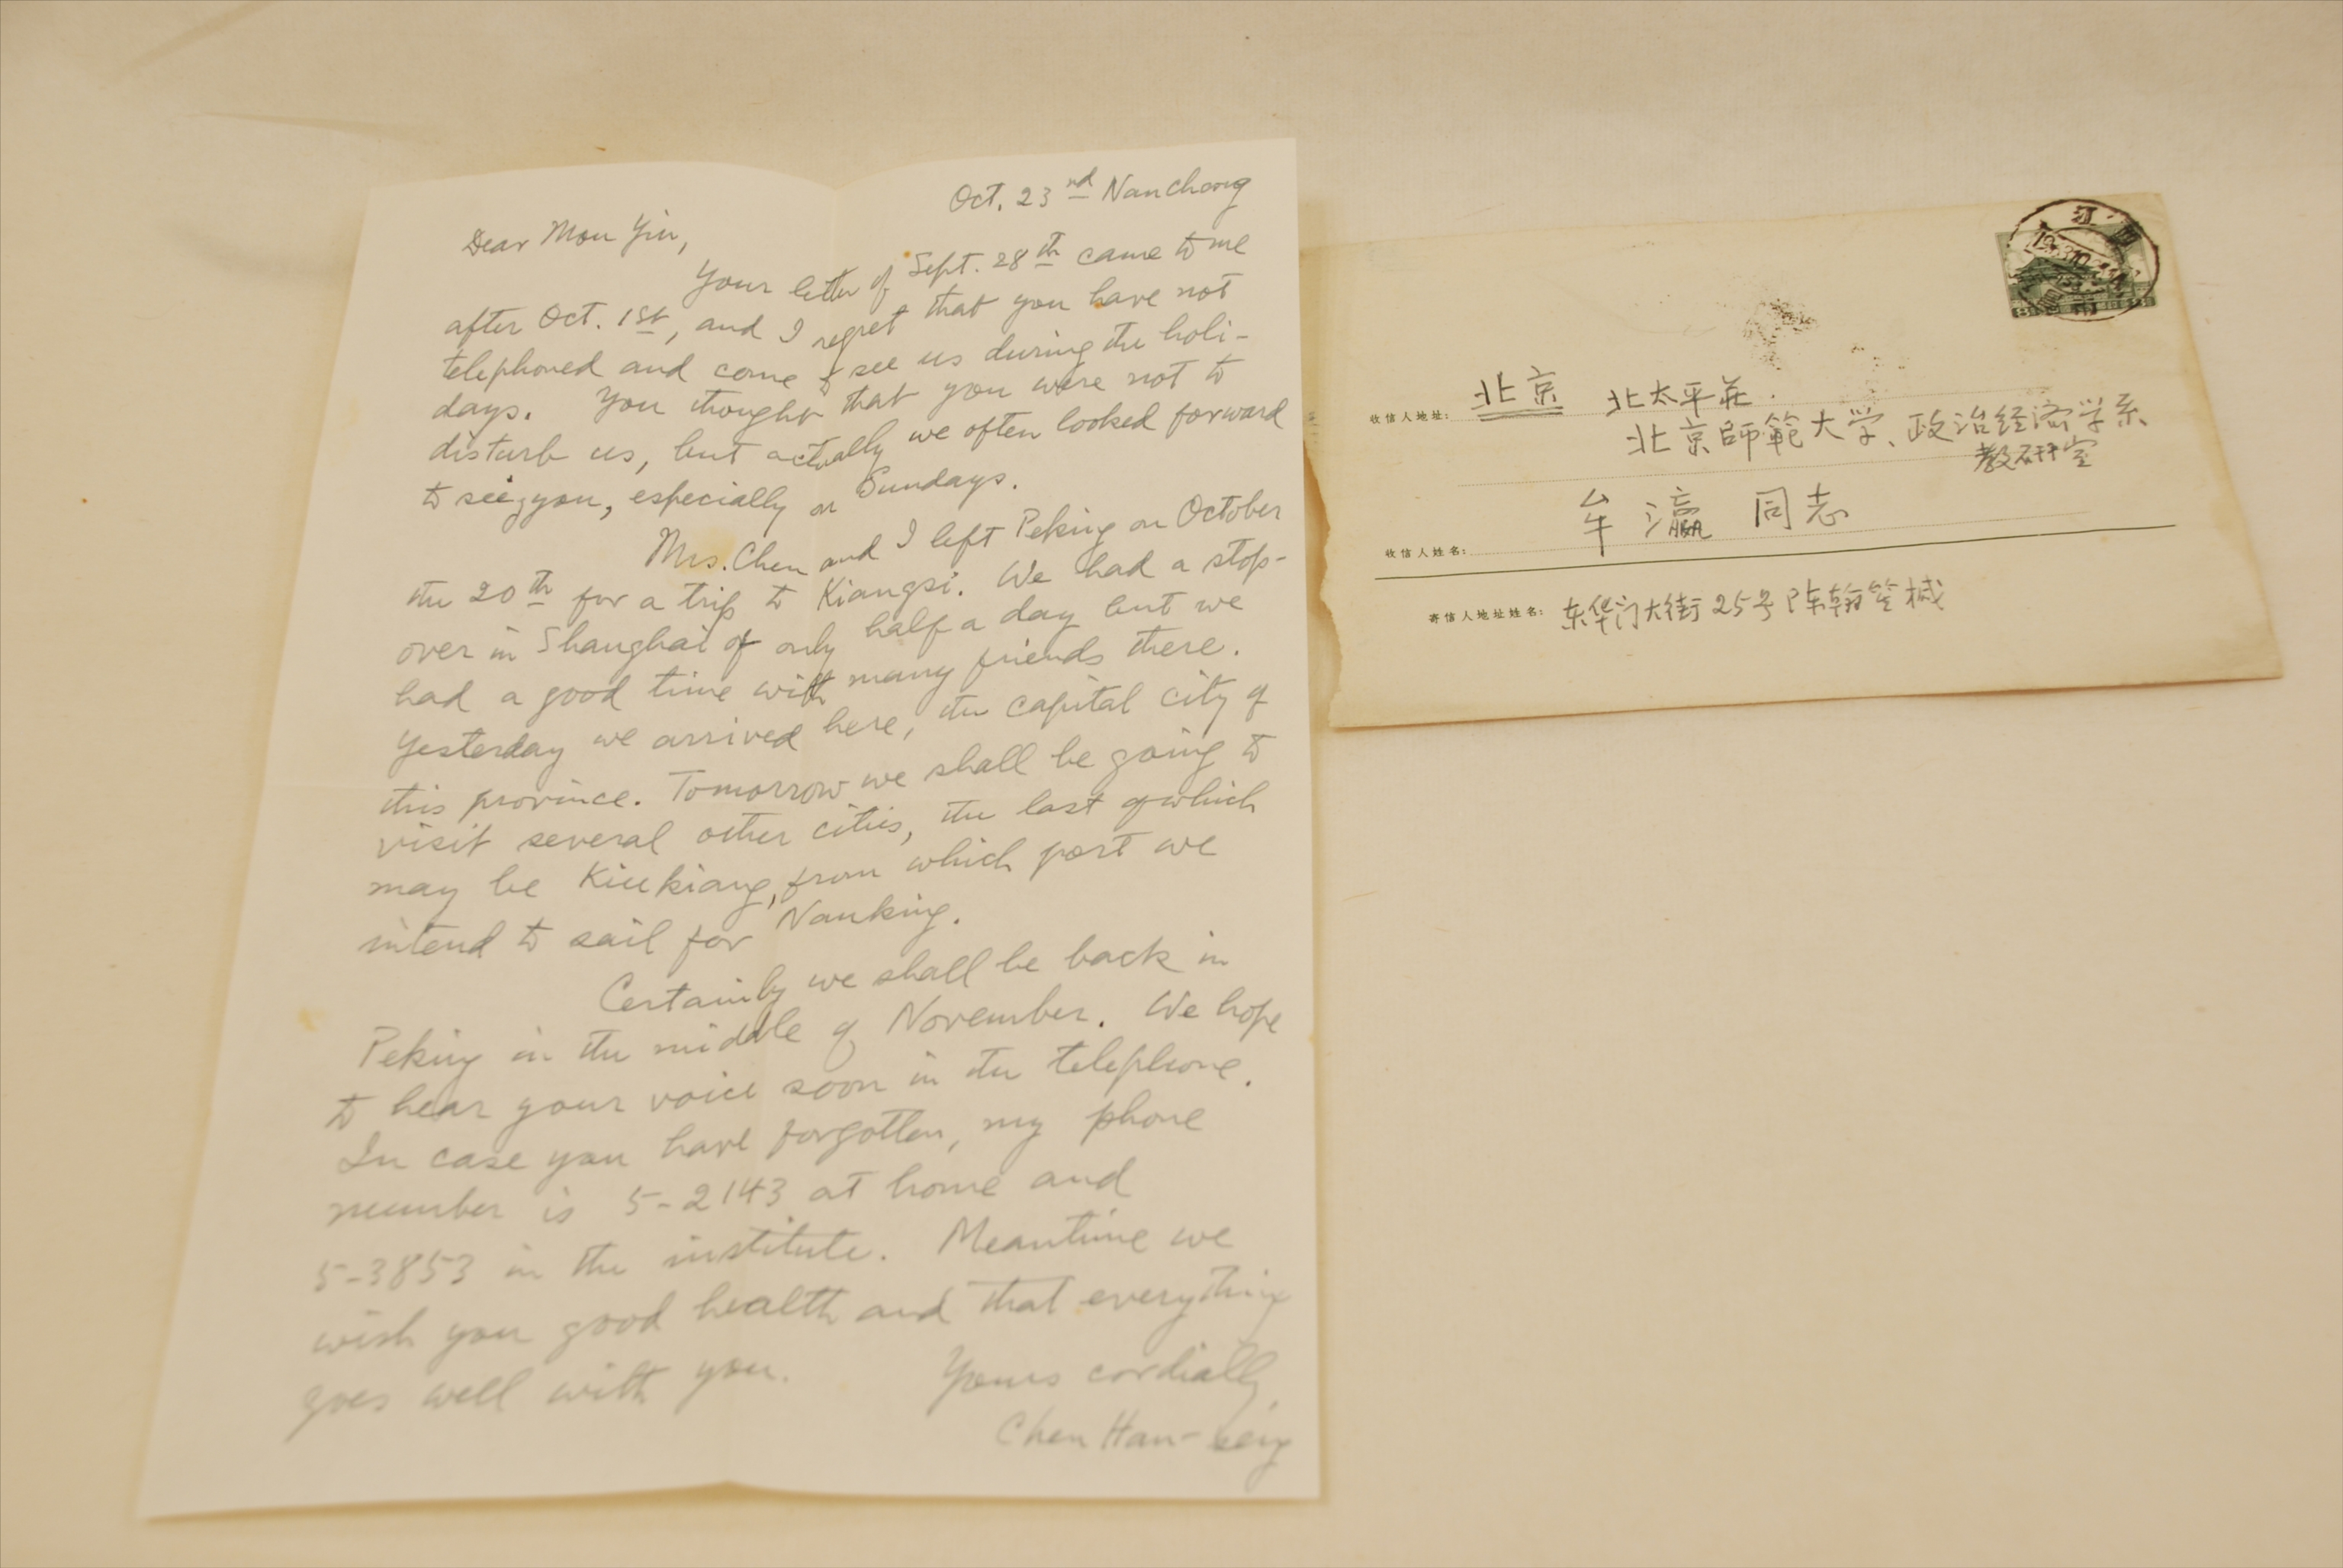 Oct. 23nd Nanchang
Dear Mou Yin,
Your letter of Sept. 28th came to me
after Oct. 1st, and I regret that you have not
telephoned and come to see us during the holi-
days. You thought that you were not to
disturb us, but actually we often looked forward
to seeing you, especially on Sundays.
Mrs. Chen and I left Peking on October
the 20th for a trip to Kiangsi. We had a stop-
over in Shanghai of only half a day but we
had a good time with many friends there.
Yesterday we arrived here, the capital city of
this province. Tomorrow we shall be going to
visit several other cities, the last of which
may be Kiukiang, from which port we
intend to sail for Nanking.
Certainly we shall be back in
Peking in the middle of November. We hope
to hear your voice soon in the telephone.
In case you have forgotten, my phone
number is 5-2143 at home and
5-3853 in the institute. Meantime we
wish you good health and that everything
goes well with you.
Yours cordially,
Chen Han-seng
江西
收信人地址: 北京 北太平庄.
北京師範大学、政治经济学系
教研室
收信人姓名: 牟瀛 同志
寄信人地址姓名: 东华门大街25号 陈翰笙 椷